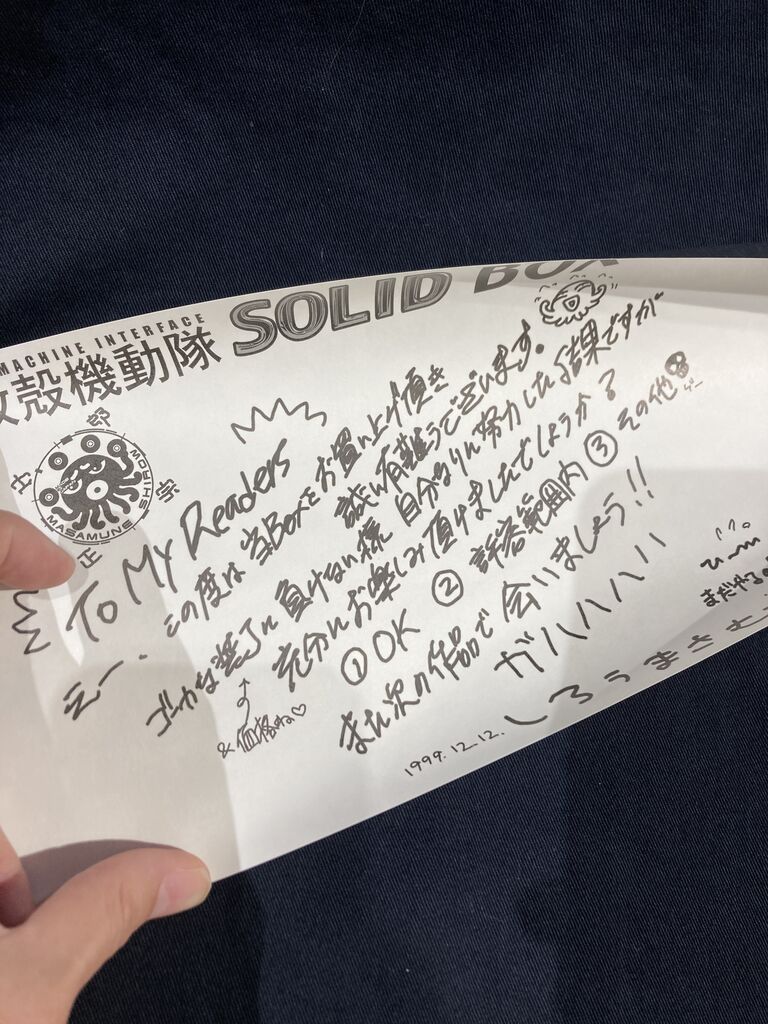 MACHINE INTERFACE
攻殻機動隊 SOLID BOX
士郎正宗
MASAMUNE SHIROW
To My Readers
えー、この度は当Boxをお買い上げ頂き
誠に有難うございます。
ゴーカな装丁に負けない様 自分なりに努力した結果ですが
&価格ね♡
充分にお楽しみ頂けましたでしょうか?
①OK ②許容範囲内 ③その他
また次の作品で会いましょう!!
ガハハハハハ
ひ〜
まだやるの
1999.12.12. しろうまさむ